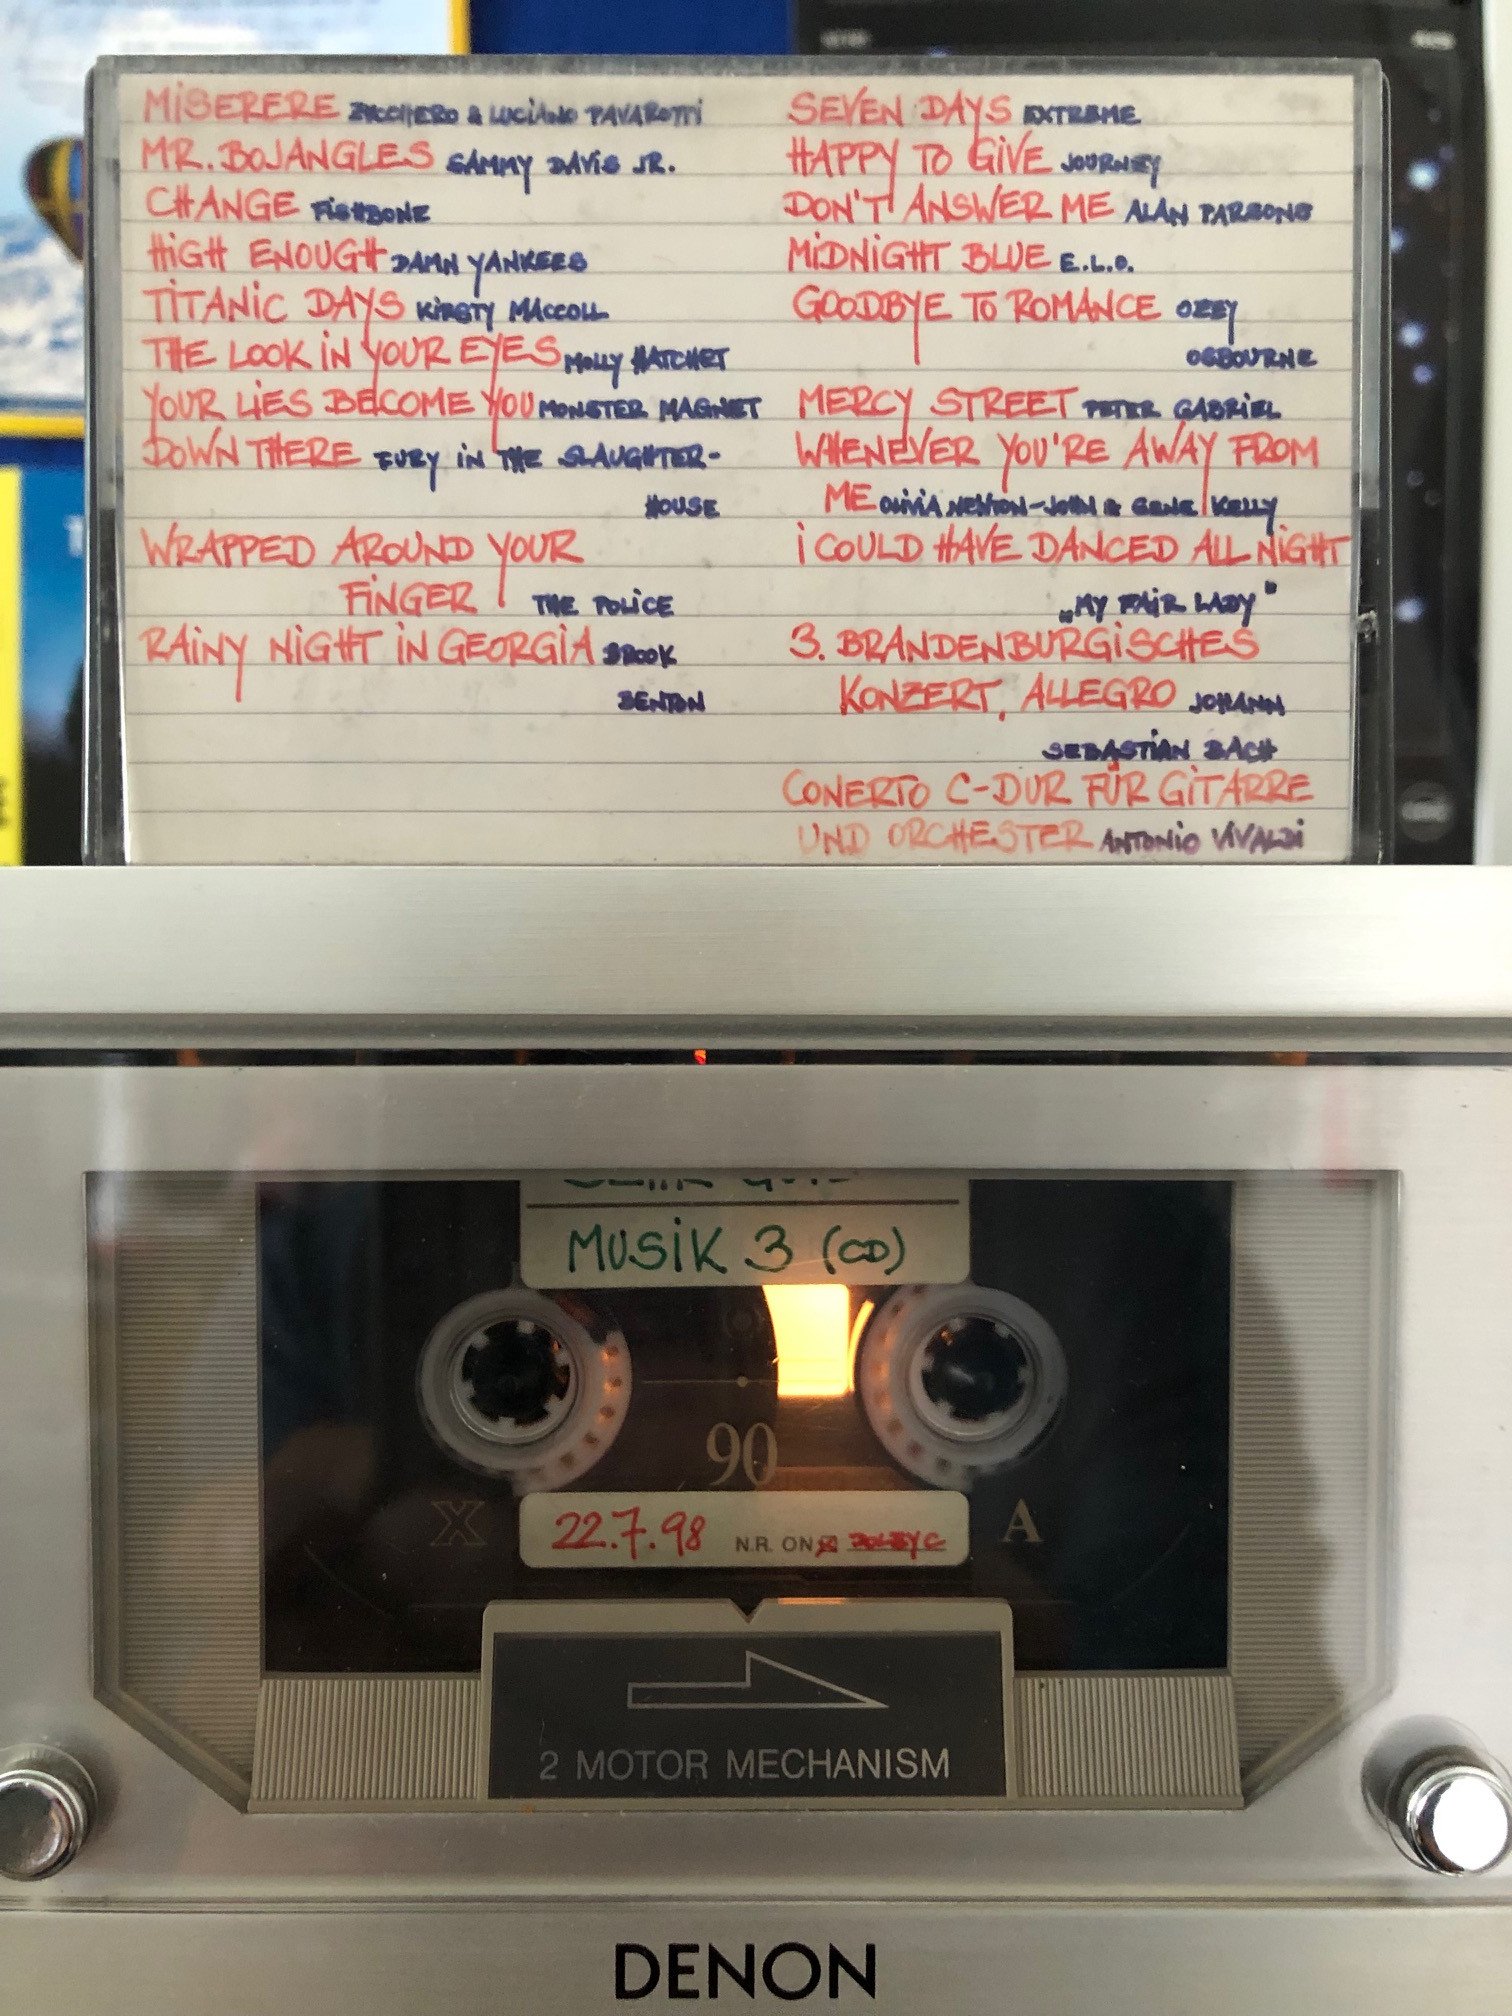 MISERERE ZUCCHERO & LUCIANO PAVAROTTI
MR. BOJANGLES SAMMY DAVIS JR.
CHANGE FISHBONE
HIGH ENOUGH DAMN YANKEES
TITANIC DAYS KIRSTY MACCOLL
THE LOOK IN YOUR EYES MOLLY HATCHET
YOUR LIES BECOME YOU MONSTER MAGNET
DOWN THERE FURY IN THE SLAUGHTER-
HOUSE
WRAPPED AROUND YOUR
FINGER THE POLICE
RAINY NIGHT IN GEORGIA BROOK
BENTON
SEVEN DAYS EXTREME
HAPPY TO GIVE JOURNEY
DON'T ANSWER ME ALAN PARSONS
MIDNIGHT BLUE E.L.O.
GOODBYE TO ROMANCE OZZY
OSBOURNE
MERCY STREET PETER GABRIEL
WHENEVER YOU'RE AWAY FROM
ME OLIVIA NEWTON-JOHN & GENE KELLY
I COULD HAVE DANCED ALL NIGHT
„MY FAIR LADY"
3. BRANDENBURGISCHES
KONZERT, ALLEGRO JOHANN
SEBASTIAN BACH
CONERTO C-DUR FÜR GITARRE
UND ORCHESTER ANTONIO VIVALDI
MUSIK 3 (CD)
90
X
A
22.7.98 N.R. ON DOLBY C
2 MOTOR MECHANISM
DENON